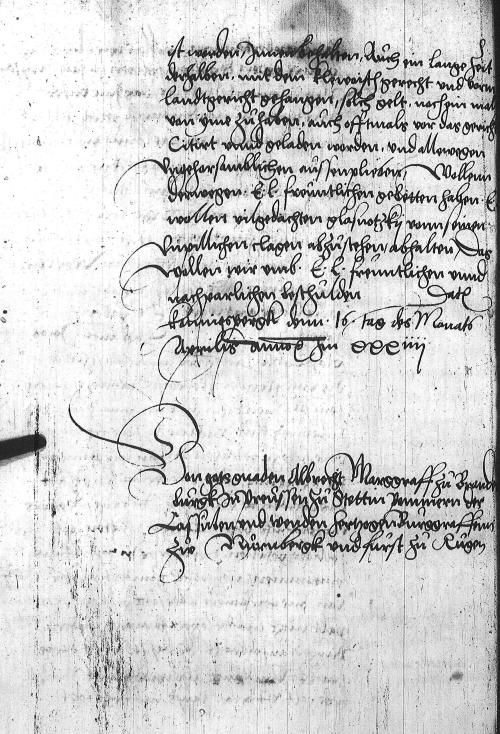 ist worden, Innenbehalten, Auch ein lange Zeit
derhalben, mit dem gerecht und vorm
landtgericht gehangen, solch gelt, nochem mals
von yme zuhaben, auch offtmals vor das gericht
Citirt unnd geladen worden, und allewegen
Ungehorsamblichen aussenplieben, Wollenn
derwegen E. L. freuntlichen gebetten haben E
wollen vilgedachten glasnotzkij vonn seinen
Unpillichen clagen abzustehen, abhalten, Das
wollen wir umb E. L. freuntlichen unnd
nachparlichen beschulden Dat
Kunigspergk denn 16 tag des Monats
Aprilis anno im xxxiiij
Von gots gnaden Albrecht Marggraff zu Brande
burgk In Preussen zu Stettin Pommern der
Cassuben und Wenden hertzogen Burggraff
zw Nurnbergk und furst zu Rugen